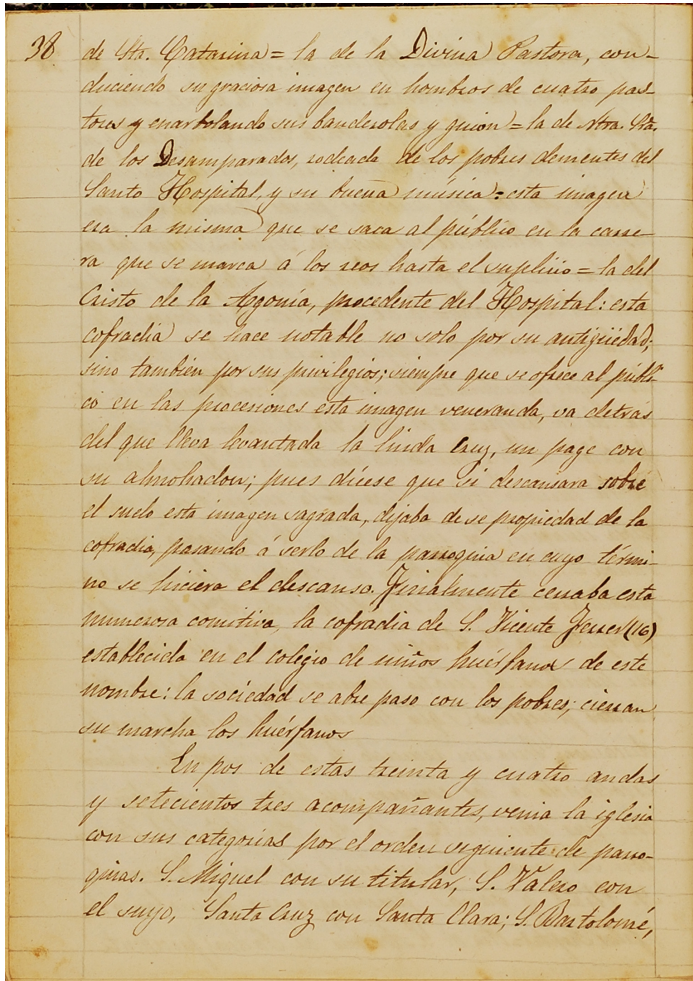 38
de Sta. Catarina = la de la Divina Pastora, con-
duciendo su graciosa imagen en hombros de cuatro pas-
tores y enarbolando sus banderolas y guion = la de Ntra. Sra.
de los Desamparados, rodeada de los pobres dementes del
Santo Hospital, y su buena música = esta imagen
era la misma que se saca al público en la carre-
ra que se marca á los reos hasta el suplicio = la del
Cristo de la Agonía, procedente del Hospital: esta
cofradia se hace notable no solo por su antigüedad,
sino también por sus privilegios; siempre que se ofrece al públi-
co en las procesiones esta imagen veneranda, va detrás
del que lleva levantada la linda cruz, un page con
su almohadon; pues dícese que si descansara sobre
el suelo esta imagen sagrada, dejaba de se propiedad de la
cofradia, pasando á serlo de la parroquia en cuyo térmi-
no se hiciera el descanso. Finalmente cerraba esta
numerosa comitiva, la cofradia de S. Vicente Ferrer (16)
establecida en el colegio de niños huérfanos de este
nombre: la sociedad se abre paso con los pobres; cierran
su marcha los huérfanos
En pos de estas treinta y cuatro andas
y setecientos tres acompañantes, venia la iglesia
con sus categorias por el orden siguiente de parro-
quias. S. Miguel con su titular, S. Valero con
el suyo, Santa Cruz con Santa Clara; S. Bartolomé,